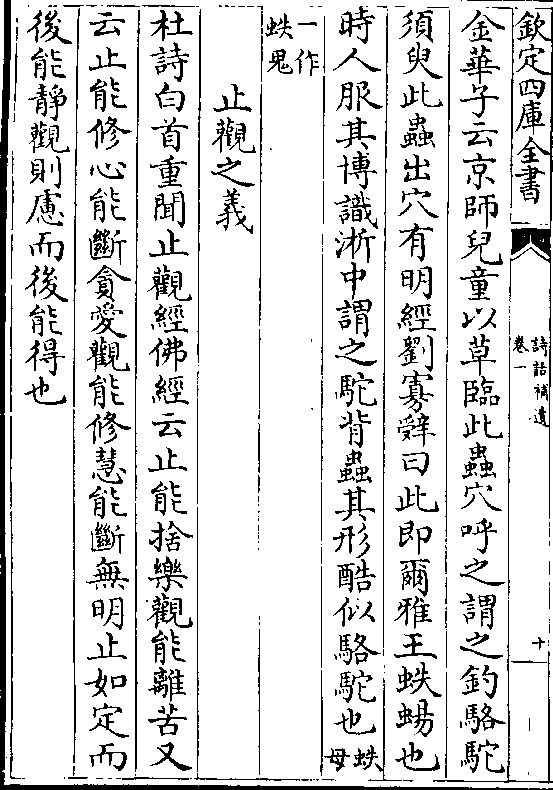 欽定四庫全書
詩話補遺
卷一
十
金華子云京師兒童以草臨此蟲穴呼之謂之釣駱駝
須臾此蟲出穴有明經劉寡辭曰此即爾雅王蛈蜴也
時人服其博識淅中謂之駝背蟲其形酷似駱駝也蛈母
一作蛈鬼
止觀之義
杜詩白首重聞止觀經佛經云止能捨樂觀能離苦又
云止能修心能斷貪愛觀能修慧能斷無明止如定而
後能靜觀則慮而後能得也